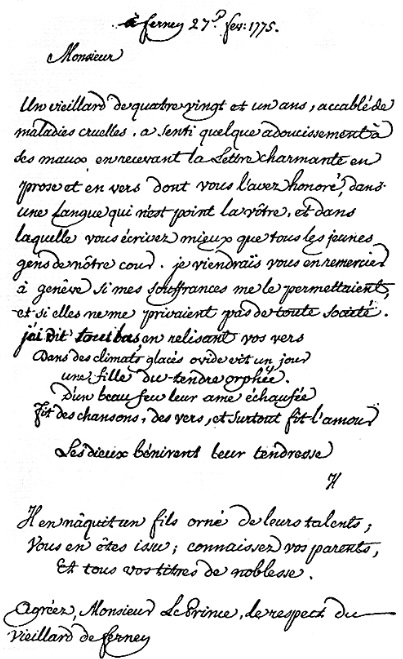 à ferney 27e. fev: 1775.
Monsieur
Un vieillard de quatre vingt et un ans, accablé de
maladies cruelles, a senti quelque adoucissement à
ses maux en recevant la Lettre charmante en
prose et en vers dont vous l'avez honoré, dans
une Langue qui n'est point la vôtre, et dans
laquelle vous écrivez mieux que tous les jeunes
gens de nôtre cour. je viendrais vous en remercier
à genève si mes souffrances me le permettaient,
et si elles ne me privaient pas de toute societé.
j'ai dit tout bas en relisant vos vers
Dans des climats glacés ovide vit un jour
une fille du tendre orphée.
D'un beau feu leur ame échaufée
Fit des chansons, des vers, et surtout fit l'amour
Les dieux bénirent leur tendresse
Il
Il en nâquit un fils orné de leurs talents;
Vous en êtes issu; connaissez vos parents,
Et tous vos titres de noblesse.
Agréez, Monsieur Le Prince, le respect du
vieillard de ferney